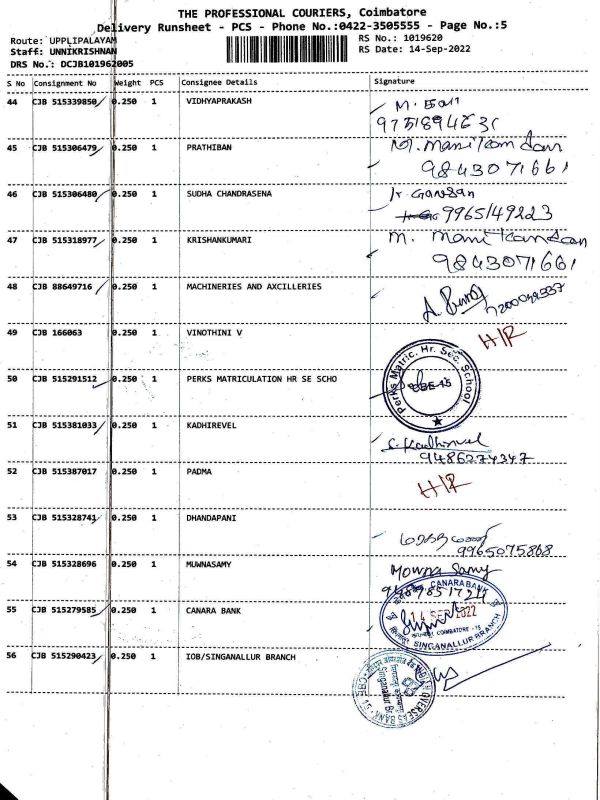 THE PROFESSIONAL COURIERS, Coimbatore
Delivery Runsheet - PCS - Phone No.:0422-3505555 - Page No.:5
Route: UPPLIPALAYAM
RS No.: 1019620
Staff: UNNIKRISHNAN
RS Date: 14-Sep-2022
DRS No.: DCJB101962005
S No Consignment No Weight PCS Consignee Details Signature
44 CJB 515339850 0.250 1 VIDHYAPRAKASH M.
45 CJB 515306479 0.250 1 PRATHIBAN M. Manikandan
9843071661
46 CJB 515306480 0.250 1 SUDHA CHANDRASENA Ganesan
9965149223
47 CJB 515318977 0.250 1 KRISHANKUMARI M. Manikandan
9843071661
48 CJB 88649716 0.250 1 MACHINERIES AND AXCILLERIES
49 CJB 166063 0.250 1 VINOTHINI V H/R
50 CJB 515291512 0.250 1 PERKS MATRICULATION HR SE SCHO Perks Matric. Hr. Sec. School
CBE-15
51 CJB 515381033 0.250 1 KADHIREVEL S. Kadhirvel
9486274347
52 CJB 515387017 0.250 1 PADMA H/R
53 CJB 515328741 0.250 1 DHANDAPANI
9965075868
54 CJB 515328696 0.250 1 MUWNASAMY Mowna Samy
55 CJB 515279585 0.250 1 CANARA BANK CANARA BANK
14 SEP 2022
COIMBATORE - 15
SINGANALLUR BRANCH
56 CJB 515290423 0.250 1 IOB/SINGANALLUR BRANCH OVERSEAS BANK
Singanallur Br